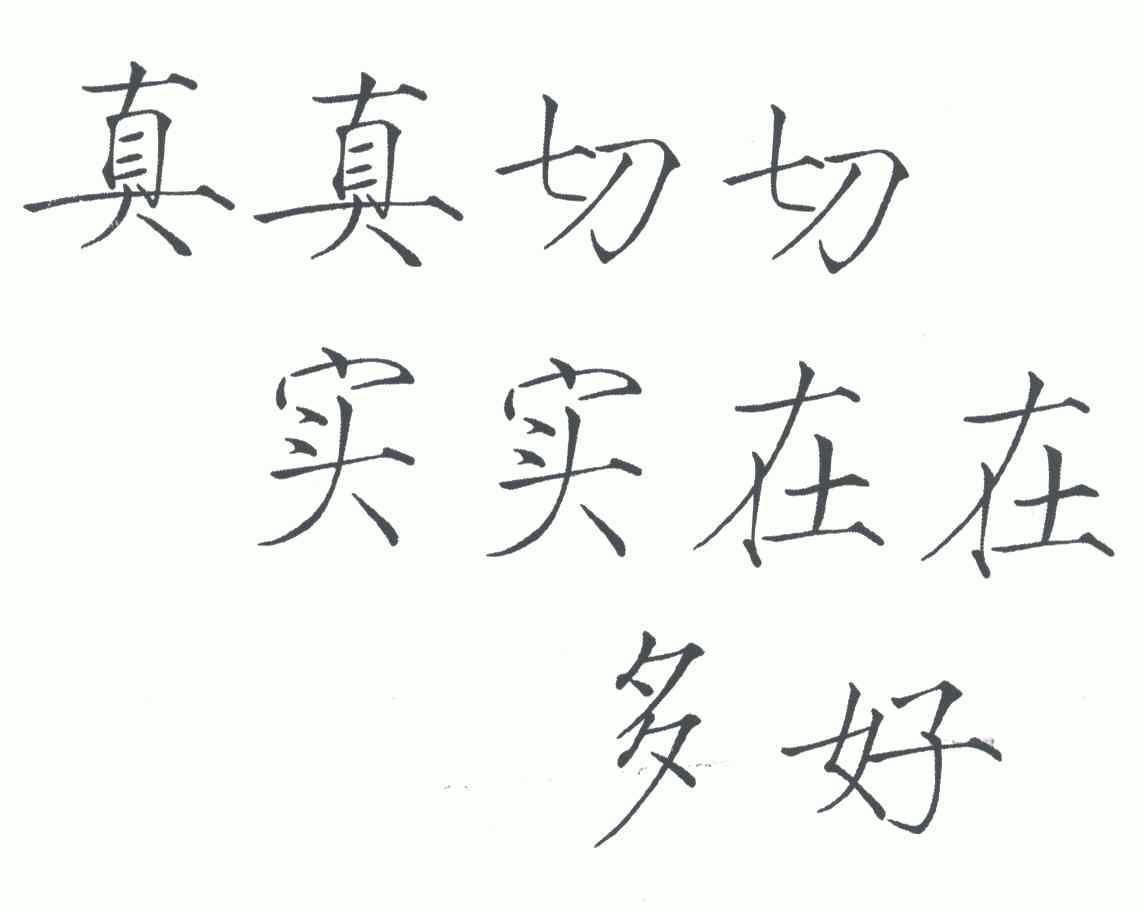 真真切切
实实在在
多好